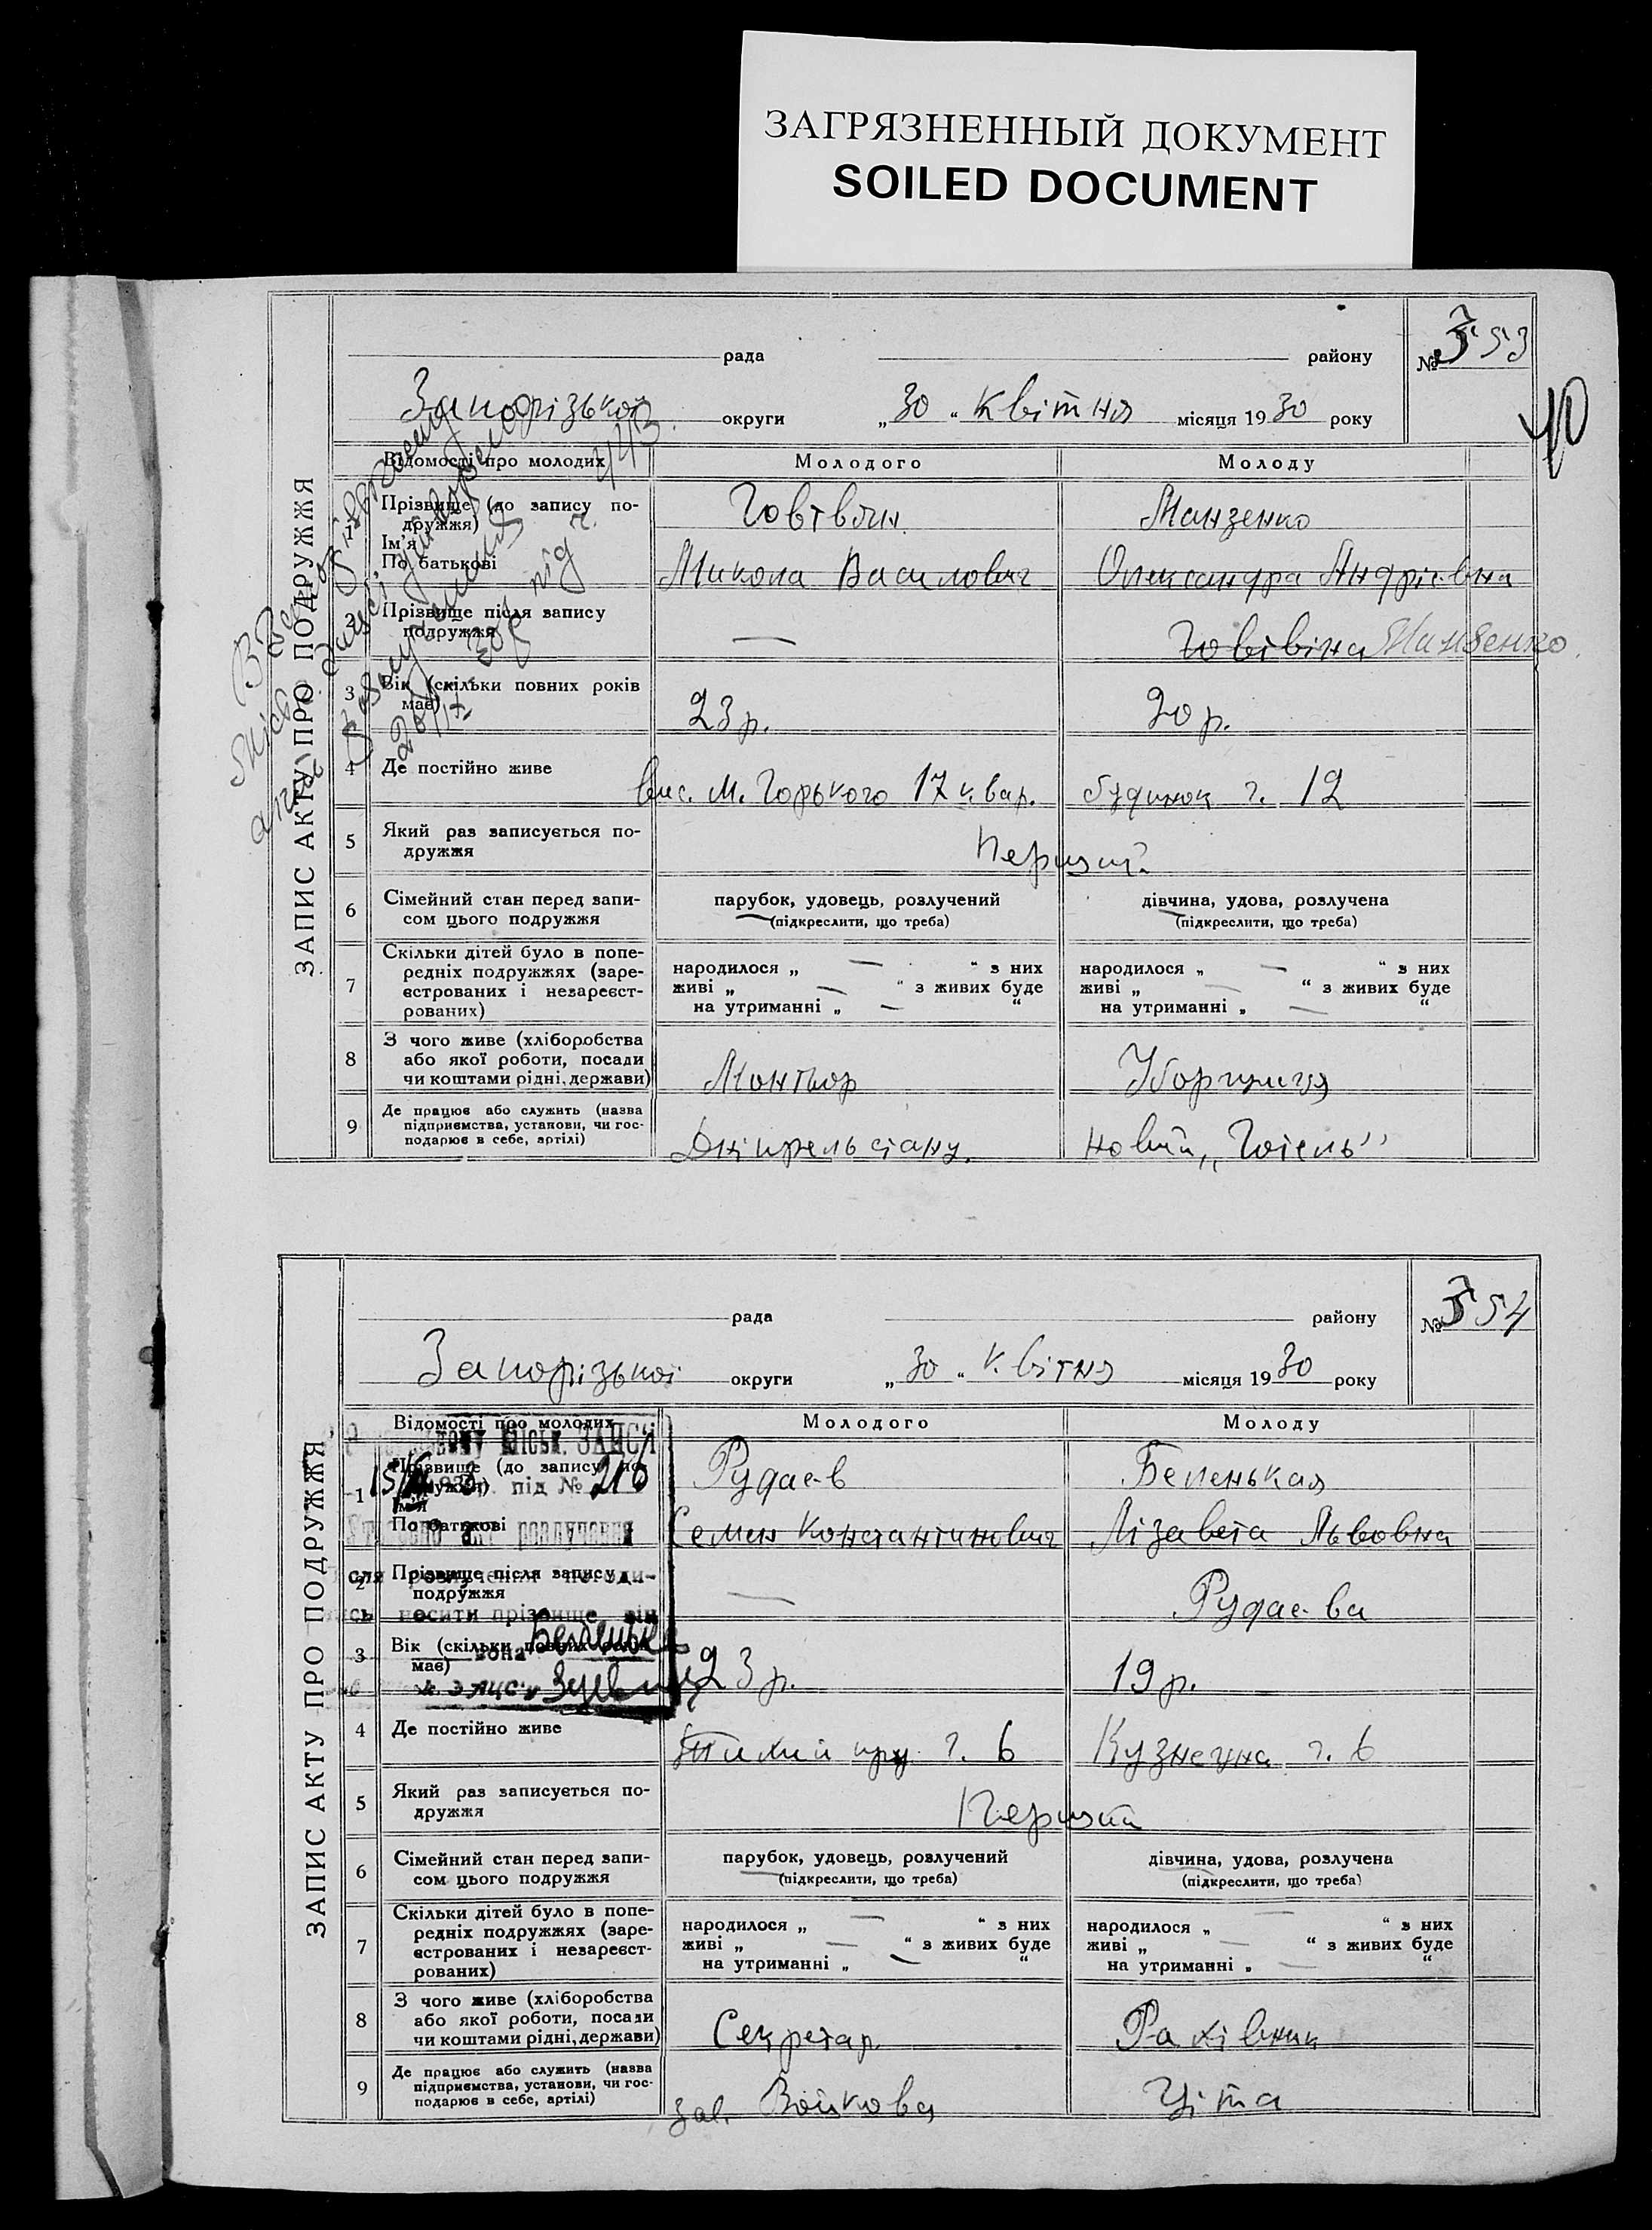 ЗАГРЯЗНЕННЫЙ ДОКУМЕНТ
SOILED DOCUMENT
ЗАПИС АКТУ ПРО ПОДРУЖЖЯ
рада району № 353
Запорізької округи „30“ Квітня місяця 1930 року
40
Відомості про молодих Молодого Молоду
Прізвище (до запису по-
дружжя)
Говтвин Манзенко
Ім'я
По батькові
Микола Василович Олександра Андрієвна
2 Прізвище після запису
подружжя
— Говтвіна Манзенко
3 Вік (скільки повних років
має)
23 р. 20 р.
4 Де постійно живе
вис. М. Горького 17 квар. будинок ч. 12
5 Який раз записується по-
дружжя
Перший
6 Сімейний стан перед запи-
сом цього подружжя
парубок, удовець, розлучений
(підкреслити, що треба)
дівчина, удова, розлучена
(підкреслити, що треба)
7 Скільки дітей було в попе-
редніх подружжях (заре-
єстрованих і незареєст-
рованих)
народилося „ — “ з них
живі „ — “ з живих буде
на утриманні „ — “
народилося „ — “ з них
живі „ — “ з живих буде
на утриманні „ — “
8 З чого живе (хліборобства
або якої роботи, посади
чи коштами рідні, держави)
Монтьор Уборщиця
9 Де працює або служить (назва
підприємства, установи, чи гос-
подарює в себе, артілі)
Дніпрельстану. Новий „Готель“
ЗАПИС АКТУ ПРО ПОДРУЖЖЯ
рада району № 354
Запорізької округи „30“ Квітня місяця 1930 року
Відомості про молодих Молодого Молоду
1 Прізвище (до запису по-
дружжя)
Рудаєв Беленькая
Ім'я
По батькові
Семен Константинович Лізавета Львовна
під № 216
розлучення
2 Прізвище після запису
подружжя
— Рудаєва
носити прізвище він
вона
3 Вік (скільки повних років
має)
23 р. 19 р.
4 Де постійно живе
ч. 6 Кузнечна ч. 6
5 Який раз записується по-
дружжя
Перший
6 Сімейний стан перед запи-
сом цього подружжя
парубок, удовець, розлучений
(підкреслити, що треба)
дівчина, удова, розлучена
(підкреслити, що треба)
7 Скільки дітей було в попе-
редніх подружжях (заре-
єстрованих і незареєст-
рованих)
народилося „ — “ з них
живі „ — “ з живих буде
на утриманні „ — “
народилося „ — “ з них
живі „ — “ з живих буде
на утриманні „ — “
8 З чого живе (хліборобства
або якої роботи, посади
чи коштами рідні, держави)
Секретар Рахівник
9 Де працює або служить (назва
підприємства, установи, чи гос-
подарює в себе, артілі)
зав. Войкова